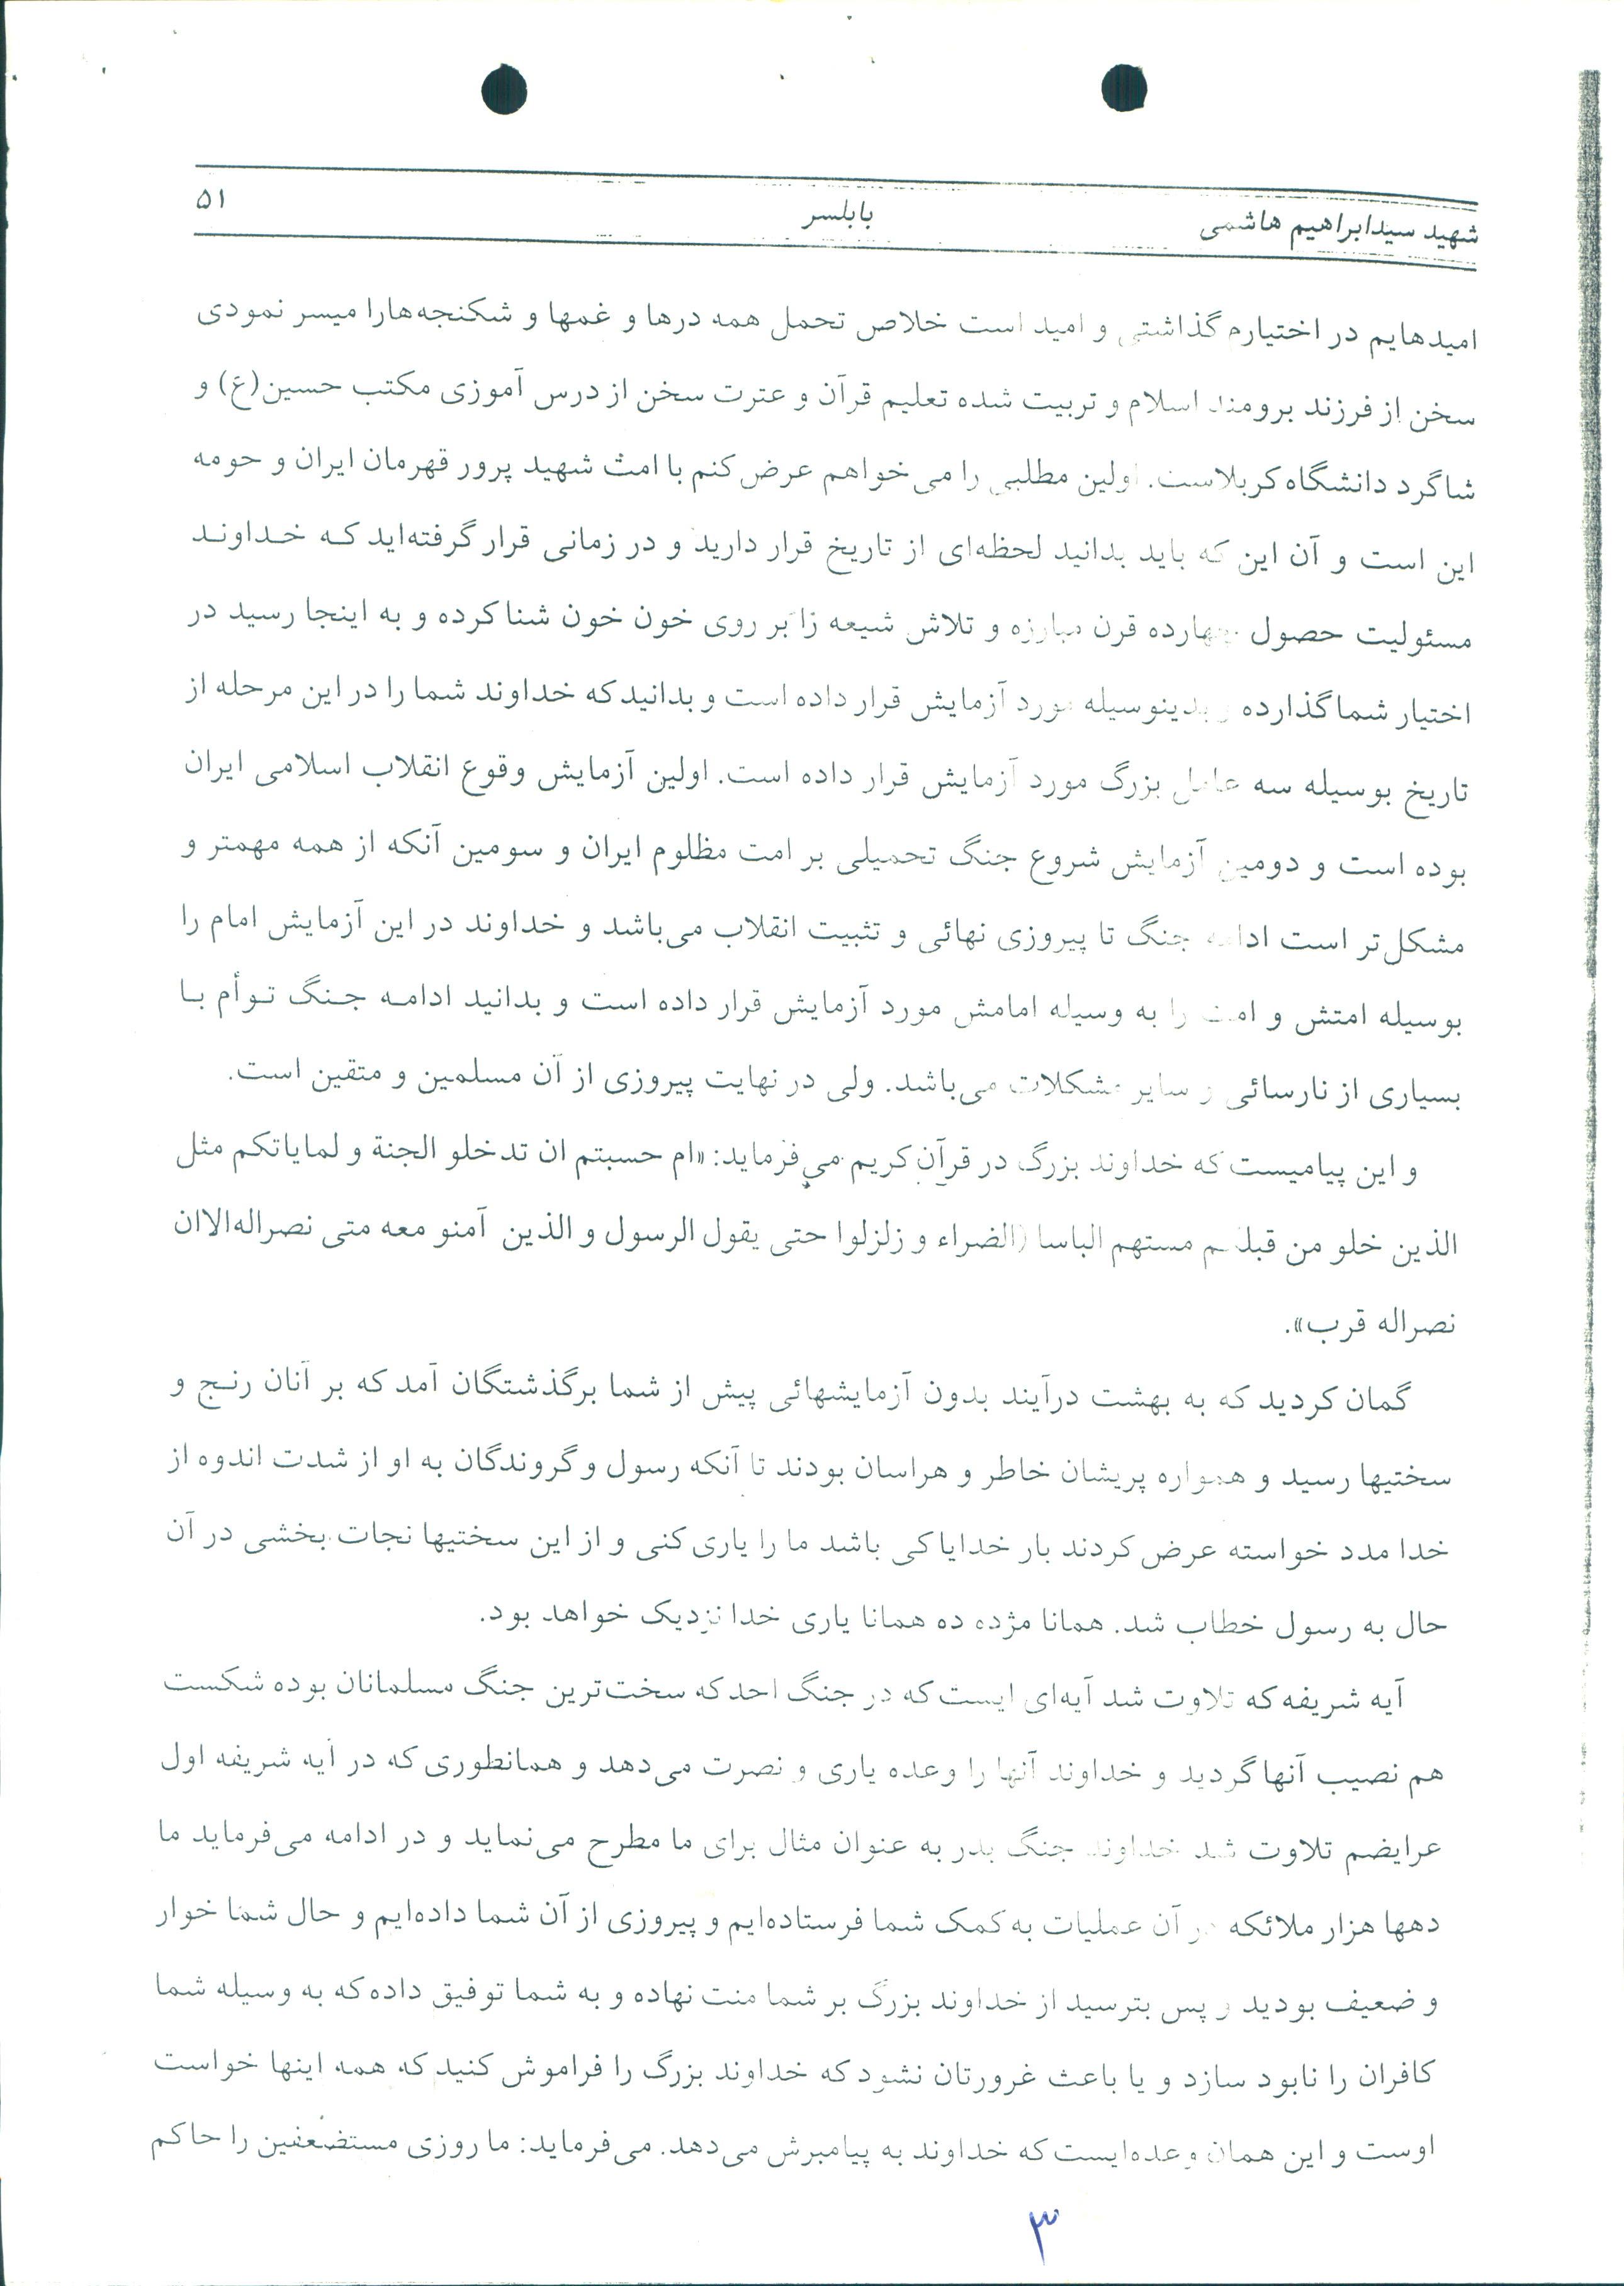 شهید سیدابراهیم هاشمی بابلسر ۵۱
امیدهایم در اختیارم گذاشتی و امید است خلاص تحمل همه درها و غمها و شکنجه‌هارا میسر نمودی
سخن از فرزند برومند اسلام و تربیت شده تعلیم قرآن و عترت سخن از درس آموزی مکتب حسین(ع) و
شاگرد دانشگاه کربلاست. اولین مطلبی را می‌خواهم عرض کنم با امت شهید پرور قهرمان ایران و حومه
این است و آن این که باید بدانید لحظه‌ای از تاریخ قرار دارید و در زمانی قرار گرفته‌اید که خداوند
مسئولیت حصول چهارده قرن مبارزه و تلاش شیعه را بر روی خون خون شنا کرده و به اینجا رسید در
اختیار شما گذارده و بدینوسیله مورد آزمایش قرار داده است و بدانید که خداوند شما را در این مرحله از
تاریخ بوسیله سه عامل بزرگ مورد آزمایش قرار داده است. اولین آزمایش وقوع انقلاب اسلامی ایران
بوده است و دومین آزمایش شروع جنگ تحمیلی بر امت مظلوم ایران و سومین آنکه از همه مهمتر و
مشکل‌تر است ادامه جنگ تا پیروزی نهائی و تثبیت انقلاب می‌باشد و خداوند در این آزمایش امام را
بوسیله امتش و امت را به وسیله امامش مورد آزمایش قرار داده است و بدانید ادامه جنگ توأم با
بسیاری از نارسائی و سایر مشکلات می‌باشد. ولی در نهایت پیروزی از آن مسلمین و متقین است.
و این پیامیست که خداوند بزرگ در قرآن کریم می‌فرماید: «ام حسبتم ان تدخلو الجنة و لمایاتکم مثل
الذین خلو من قبلکم مستهم الباسا والضراء و زلزلوا حتی یقول الرسول و الذین آمنو معه متی نصراله‌الاان
نصراله قرب».
گمان کردید که به بهشت درآیند بدون آزمایشهائی پیش از شما برگذشتگان آمد که بر آنان رنج و
سختیها رسید و همواره پریشان خاطر و هراسان بودند تا آنکه رسول و گروندگان به او از شدت اندوه از
خدا مدد خواسته عرض کردند بار خدایا کی باشد ما را یاری کنی و از این سختیها نجات بخشی در آن
حال به رسول خطاب شد. همانا مژده ده همانا یاری خدا نزدیک خواهد بود.
آیه شریفه که تلاوت شد آیه‌ای ایست که در جنگ احد که سخت‌ترین جنگ مسلمانان بوده شکست
هم نصیب آنها گردید و خداوند آنها را وعده یاری و نصرت می‌دهد و همانطوری که در آیه شریفه اول
عرایضم تلاوت شد خداوند جنگ بدر به عنوان مثال برای ما مطرح می‌نماید و در ادامه می‌فرماید ما
دهها هزار ملائکه در آن عملیات به کمک شما فرستاده‌ایم و پیروزی از آن شما داده‌ایم و حال شما خوار
و ضعیف بودید و پس بترسید از خداوند بزرگ بر شما منت نهاده و به شما توفیق داده که به وسیله شما
کافران را نابود سازد و یا باعث غرورتان نشود که خداوند بزرگ را فراموش کنید که همه اینها خواست
اوست و این همان وعده‌ایست که خداوند به پیامبرش می‌دهد. می‌فرماید: ما روزی مستضعفین را حاکم
۳